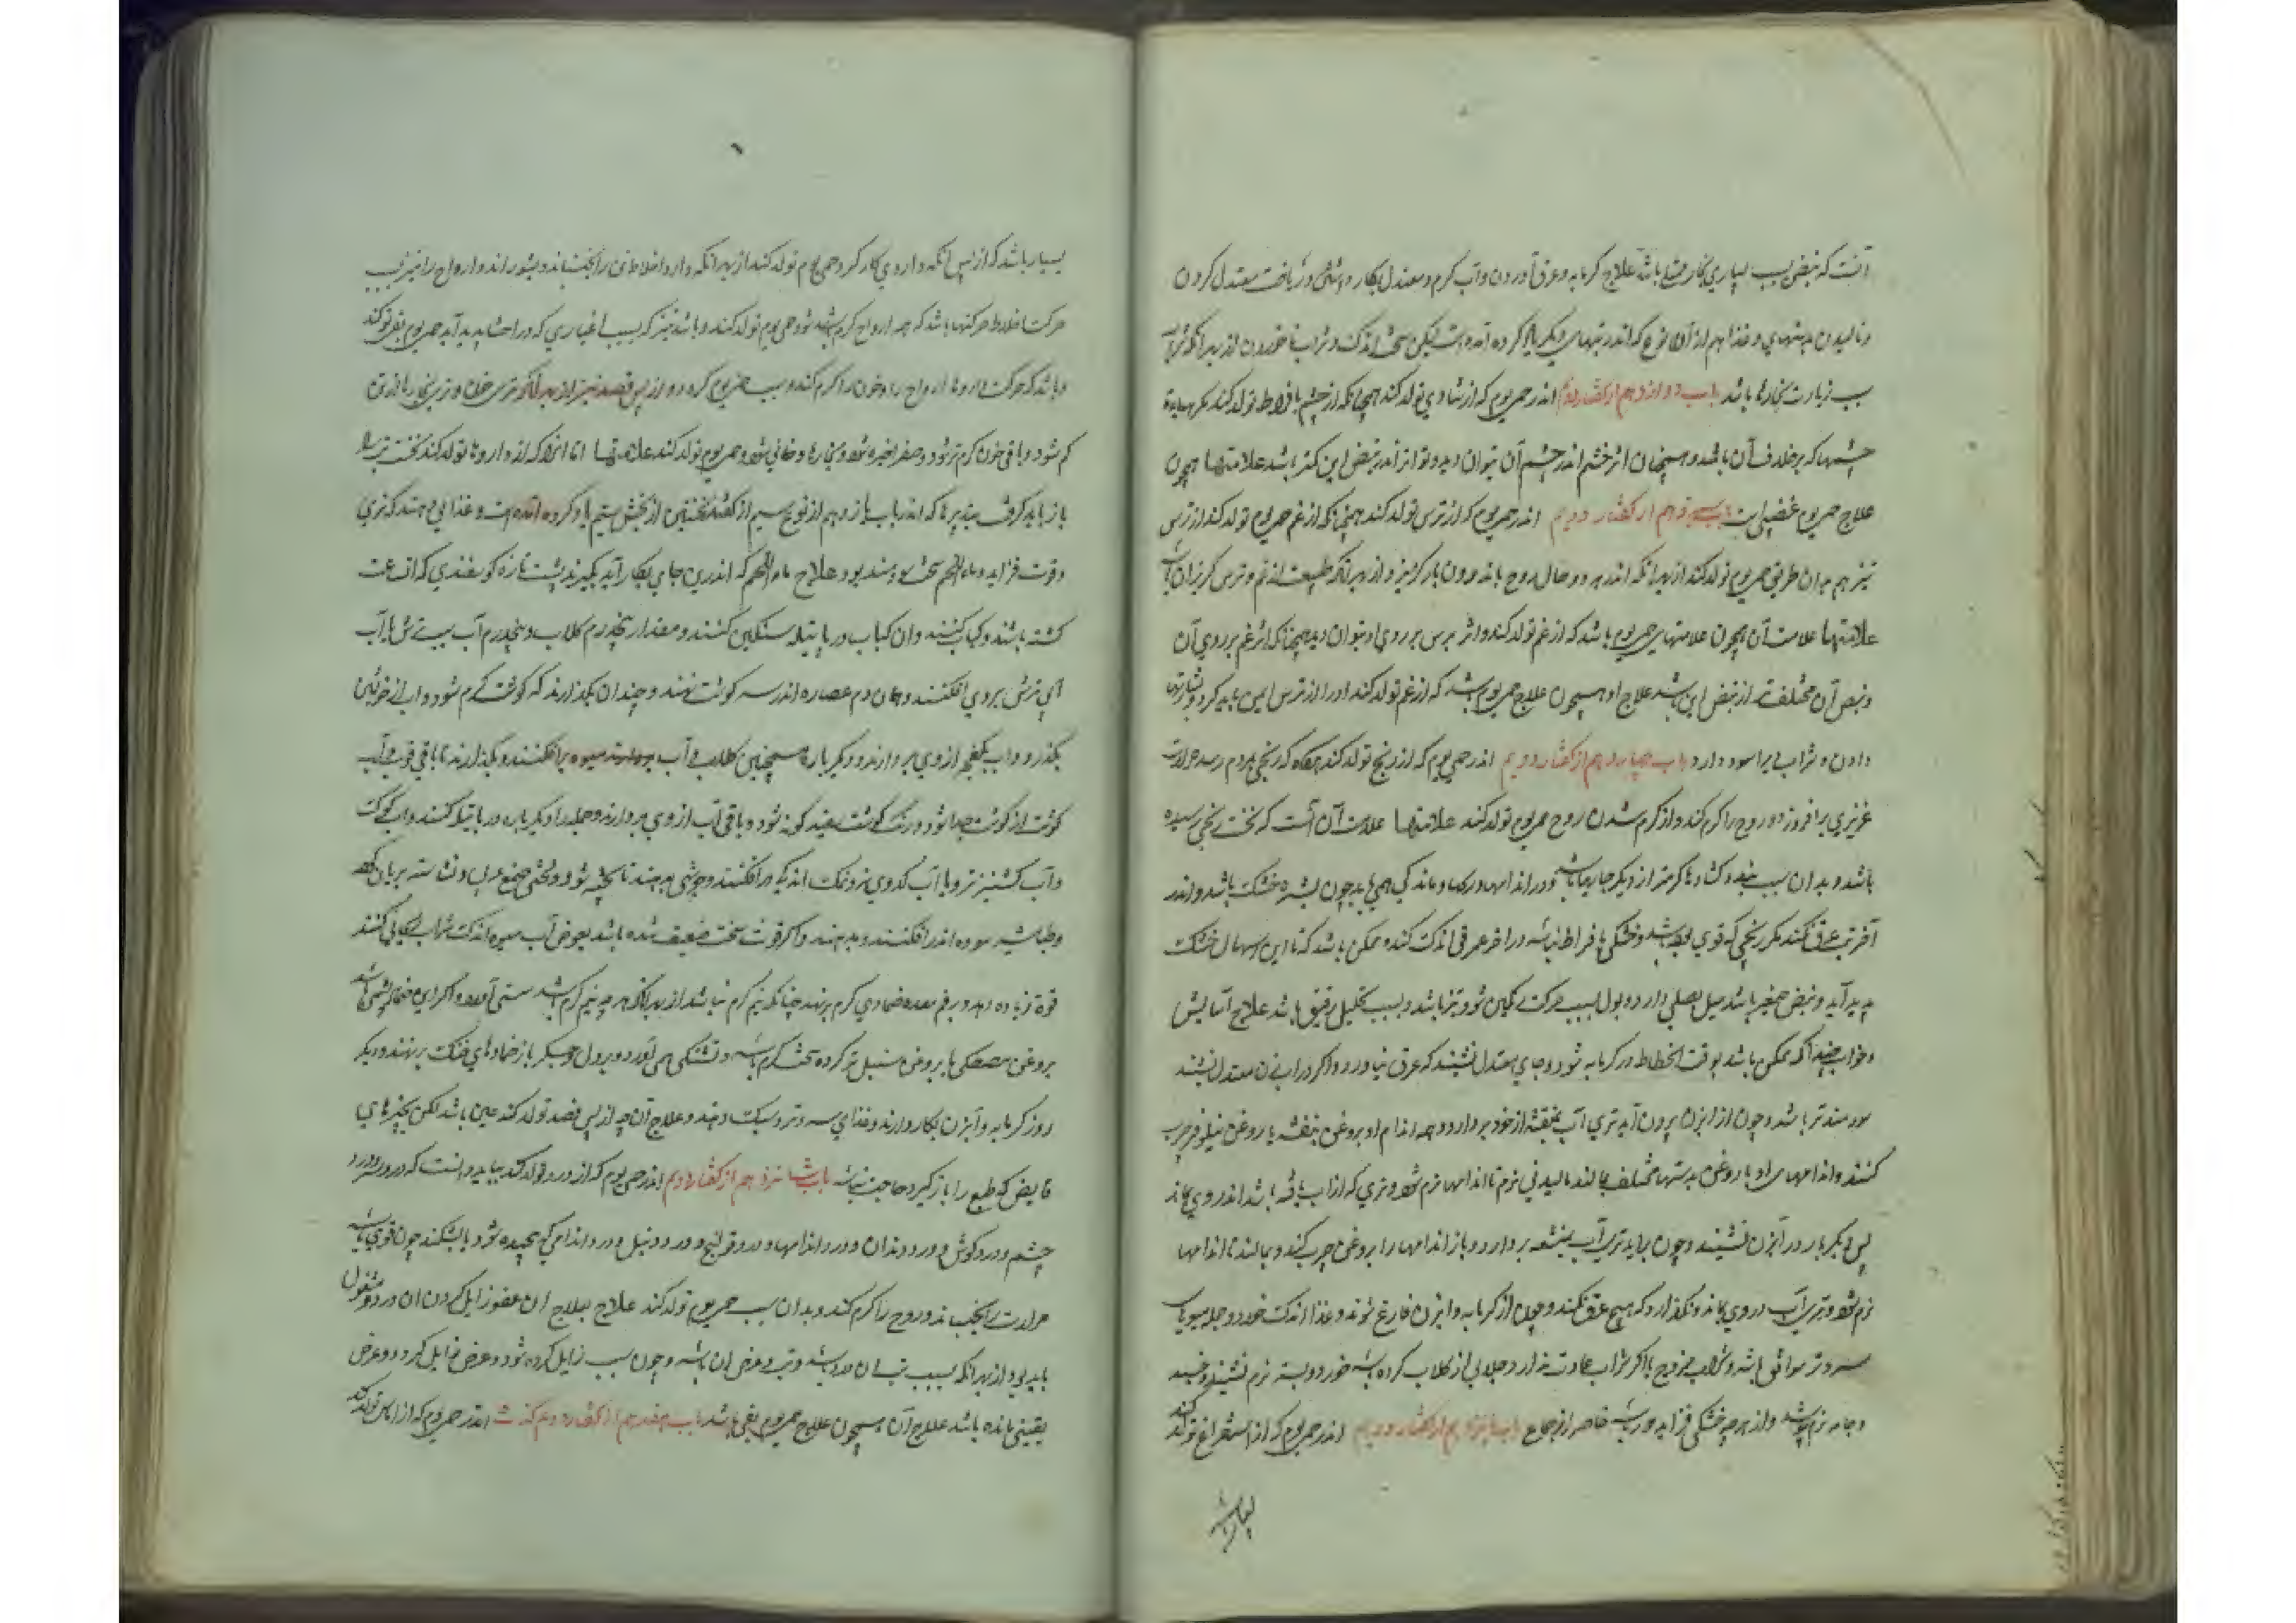 آنست که نبض بسبب بسیاری بخار ممتلی باشد علاج گرمابه و عرق آوردن و آب گرم و معتدل بکار داشتن و ریاضت معتدل کردن
و مالیدن بدستهای و غذا هم از آن نوع که اندر تبهای دیگر یاد کرده آمده است لیکن سخت اندک و شراب ناخوردن از بهر آنکه شراب
سبب زیادت بخارها باشد باب دوازدهم از گفتار دوم اندر حمی یوم که از شادی تولد کند همچنانکه از خشم بافراط تولد کند مگر
چشمها که برخلاف آن باشد و همچنان اثر خشم اندر چشم آن بتوان دید و تواتر آمدن نبض این کمتر باشد علامتها همچون
علاج حمی یوم غضبی است باب سیزدهم از گفتار دویم اندر حمی یوم که از ترس تولد کند همچنانکه از غم حمی یوم تولد کند از ترس
نیز هم بدان طریق حمی یوم تولد کند از بهر آنکه اندر هر دو حال روح باندرون باز گریزد و از بهر آنکه طبیعت از غم و ترس گریزان باشد
علامتها علامت آن همچون علامتهای حمی یوم باشد که از غم تولد کند و اثر ترس بر روی او بتوان دید همچنانکه اثر غم بر روی آن
و نبض آن مختلف‌تر از نبض این باشد علاج او همچون علاج حمی یوم باشد که از غم تولد کند او را از ترس ایمن باید کرد و بشارتها
دادن و شراب ویرا سود دارد باب چهاردهم از گفتار دویم اندر حمی یوم که از رنج تولد کند هرگاه که رنجی بمردم رسد حرارت
غریزی برافروزد و روح را گرم کند و از گرم شدن روح حمی یوم تولد کند علامتها علامت آن است که نخست رنجی رسیده
باشد و بدان سبب بندگشادها گرمتر از دیگر جایها باشد و در اندامها و رگها ماندگی همی یابد چون بشره خشک باشد و اندر
آخر تب عرق نکند مگر رنجی که قوی نبوده باشد و خشکی بافراط نباشد در آخر عرقی اندک کند و ممکن باشد که با این سعال خشک
پدید آید و نبض صغیر باشد میل بصلبی دارد و بول بسبب حرکت رنگین شود و تیز باشد و بسبب تحلیل رقیق باشد علاج آسایش
و خواب چندانکه ممکن باشد بوقت انحطاط در گرمابه شود و جای معتدل نشیند که عرق نیاورد و اگر در آبزن معتدل نشیند
سودمندتر باشد و چون از آبزن بیرون آید تری آب بنشفه از خود بردارد و همه اندام او بروغن بنفشه یا روغن نیلوفر چرب
کنند و اندامهای او با روغن بدستها مختلف بمالند مالیدنی نرم تا اندامها نرم شود و تری که از آب یافته باشد اندر وی بماند
پس دیگر بار در آبزن نشیند و چون برآید تری آب بنشفه بردارد و باز اندامها را بروغن چرب کند و بمالند تا اندامها
نرم شود و تری آب در وی بماند و نگذارد که هیچ عرق کند و چون از گرمابه و آبزن فارغ شوند و غذا اندک خورد و جمله میوهای
سرد و تر موافق باشد و شراب ممزوج یا اگر شراب عادت ندارد جلابی از گلاب کرده باشد خورد و بستر نرم نشیند و خسبد
و جامه نرم پوشد و از هرچه خشکی فزاید دور باشد خاصه از جماع باب پانزدهم از گفتار دویم اندر حمی یوم که از استفراغ تولد کند
بسیار باشد
بسیار باشد که از پس آنکه داروی کار کرد حمی یوم تولد کند از بهر آنکه دارو اخلاط تن را بجنباند و بشوراند و ارواح را نیز بسبب
حرکت اخلاط حرکتها باشد که همه ارواح گرم شود و حمی یوم تولد کند و باشد نیز که بسبب که در احشا پدید آید حمی یوم تولد کند
و باشد که حرکت داروها ارواح را و خون را گرم کند و سبب حمی یوم گردد و از پس فصد نیز از بهر آنکه تری خون و تری بخار باز
کم شود و باقی خون گرم‌تر شود و صفرا خیره شود و بخارها دخانی شود و حمی یوم تولد کند علامتها اما آنرا که از داروها تولد کند نخست
باز باید گرفت بتدبیرها که اندر باب یازدهم از نوع سیم از گفتار نخستین از بخش سیم یاد کرده آمده است و غذا می‌دهند که تری
و قوت فزاید و ماء اللحم سخت سودمند بود علاج ماء اللحم که اندرین جای بکار آید بگیرند پشت تازه گوسفندی که آن ساعت
کشته باشند و کباب کنند و آن کباب در پاتیله سنگین کنند و مقدار پنجدرم گلاب و پنجدرم آب سیب ترش یا آب
آبی ترش بر وی افکنند و همان دم عصاره اندر سه گوشت نهند و چندان بگذارند که گوشت گرم شود و آب از خویشتن
بگذرد و آب یکفلجم از وی بردارند و دیگر باره همچنین گلاب و آب میوه برافکنند و بگذارند تا باقی قوت آب
گوشت از گوشت جدا شود و رنگ گوشت سفید گونه شود و باقی آب از وی بردارند و جمله را دیگر باره در پاتیله کنند و آب گوشت
و آب گشنیز تر و یا آب کدوی تر و نمک اندکی درافکنند و جوشی بدهند تا پخته شود و لختی صمغ عربی و نشاسته بریان کرده
و طباشیر سوده اندر افکنند و بدهند و اگر قوت سخت ضعیف شده باشد بعوض آب میوه اندک شراب ریحانی کنند
قوة زیاده دهد و بر فم معده ضمادی گرم برنهند چنانکه نیم گرم نباشد از بهر آنکه هرچه نیم گرم باشد سستی آورد و اگر این ضماد پشمی باشد
بروغن مصطکی یا بروغن سنبل تر کرده سخت گرم باشد و تشنگی همی آورد و بر دل و جگر باز ضمادهای خنک برنهند و دیگر
روز گرمابه و آبزن بکار دارند و غذای سرد و تر و سبک دهند و علاج آنچه از پس فصد تولد کند همین باشد لکن بچیزهای
قابض که طبع را باز گیرد حاجت نباشد باب شانزدهم از گفتار دویم اندر حمی یوم که از درد تولد کند بباید دانست که درد سر و درد
چشم و درد گوش و درد دندان و درد اندامها و درد قولنج و درد دنبل و درد اندامی که پیچیده شود یا بشکند چون قوی باشد
حرارت را بجنباند و روح را گرم کند و بدان سبب حمی یوم تولد کند علاج بعلاج آن عضو زایل کردن آن درد مشغول
باید بود از بهر آنکه سبب تب آن درد باشد و تب عرض آن باشد و چون سبب زایل کرده شود عرض زایل گردد و عرض
یقینی مانده باشد علاج آن همچون علاج حمی یوم باشد باب هفدهم از گفتار دوم اندر حمی یوم که از آماس تولد کند